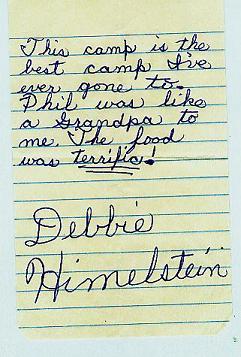 This camp is the
best camp I've
ever gone to.
Phil was like
a Grandpa to
me. The food
was terrific!
Debbie
Himelstein